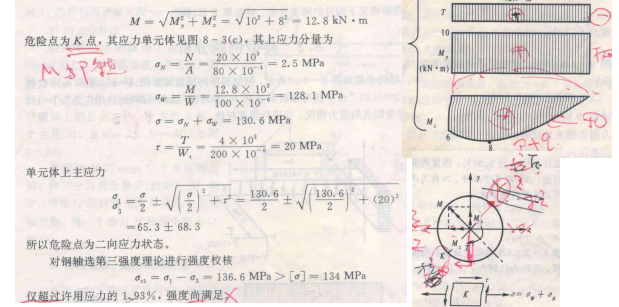 M = √(M_y² + M_z²) = √(10² + 8²) = 12.8 kN·m
危险点为 K 点，其应力单元体见图 8－3(c)，其上应力分量为
σ_N = N/A = (20 × 10³)/(80 × 10⁻⁴) = 2.5 MPa
σ_W = M/W = (12.8 × 10³)/(100 × 10⁻⁶) = 128.1 MPa
σ = σ_N + σ_W = 130.6 MPa
τ = T/W_t = (4 × 10³)/(200 × 10⁻⁶) = 20 MPa
单元体上主应力
σ₁
σ₃ = σ/2 ± √((σ/2)² + τ²) = 130.6/2 ± √((130.6/2)² + (20)²)
= 65.3 ± 68.3
所以危险点为二向应力状态。
对钢轴选第三强度理论进行强度校核
σ_r3 = σ₁ － σ₃ = 136.6 MPa > [σ] = 134 MPa
仅超过许用应力的 1.93%，强度尚满足
T
10
M_y
(kN·m)
M_z
6
8
P+q
y
M
M_z
K
K
τ
σ = σ_N + σ_W